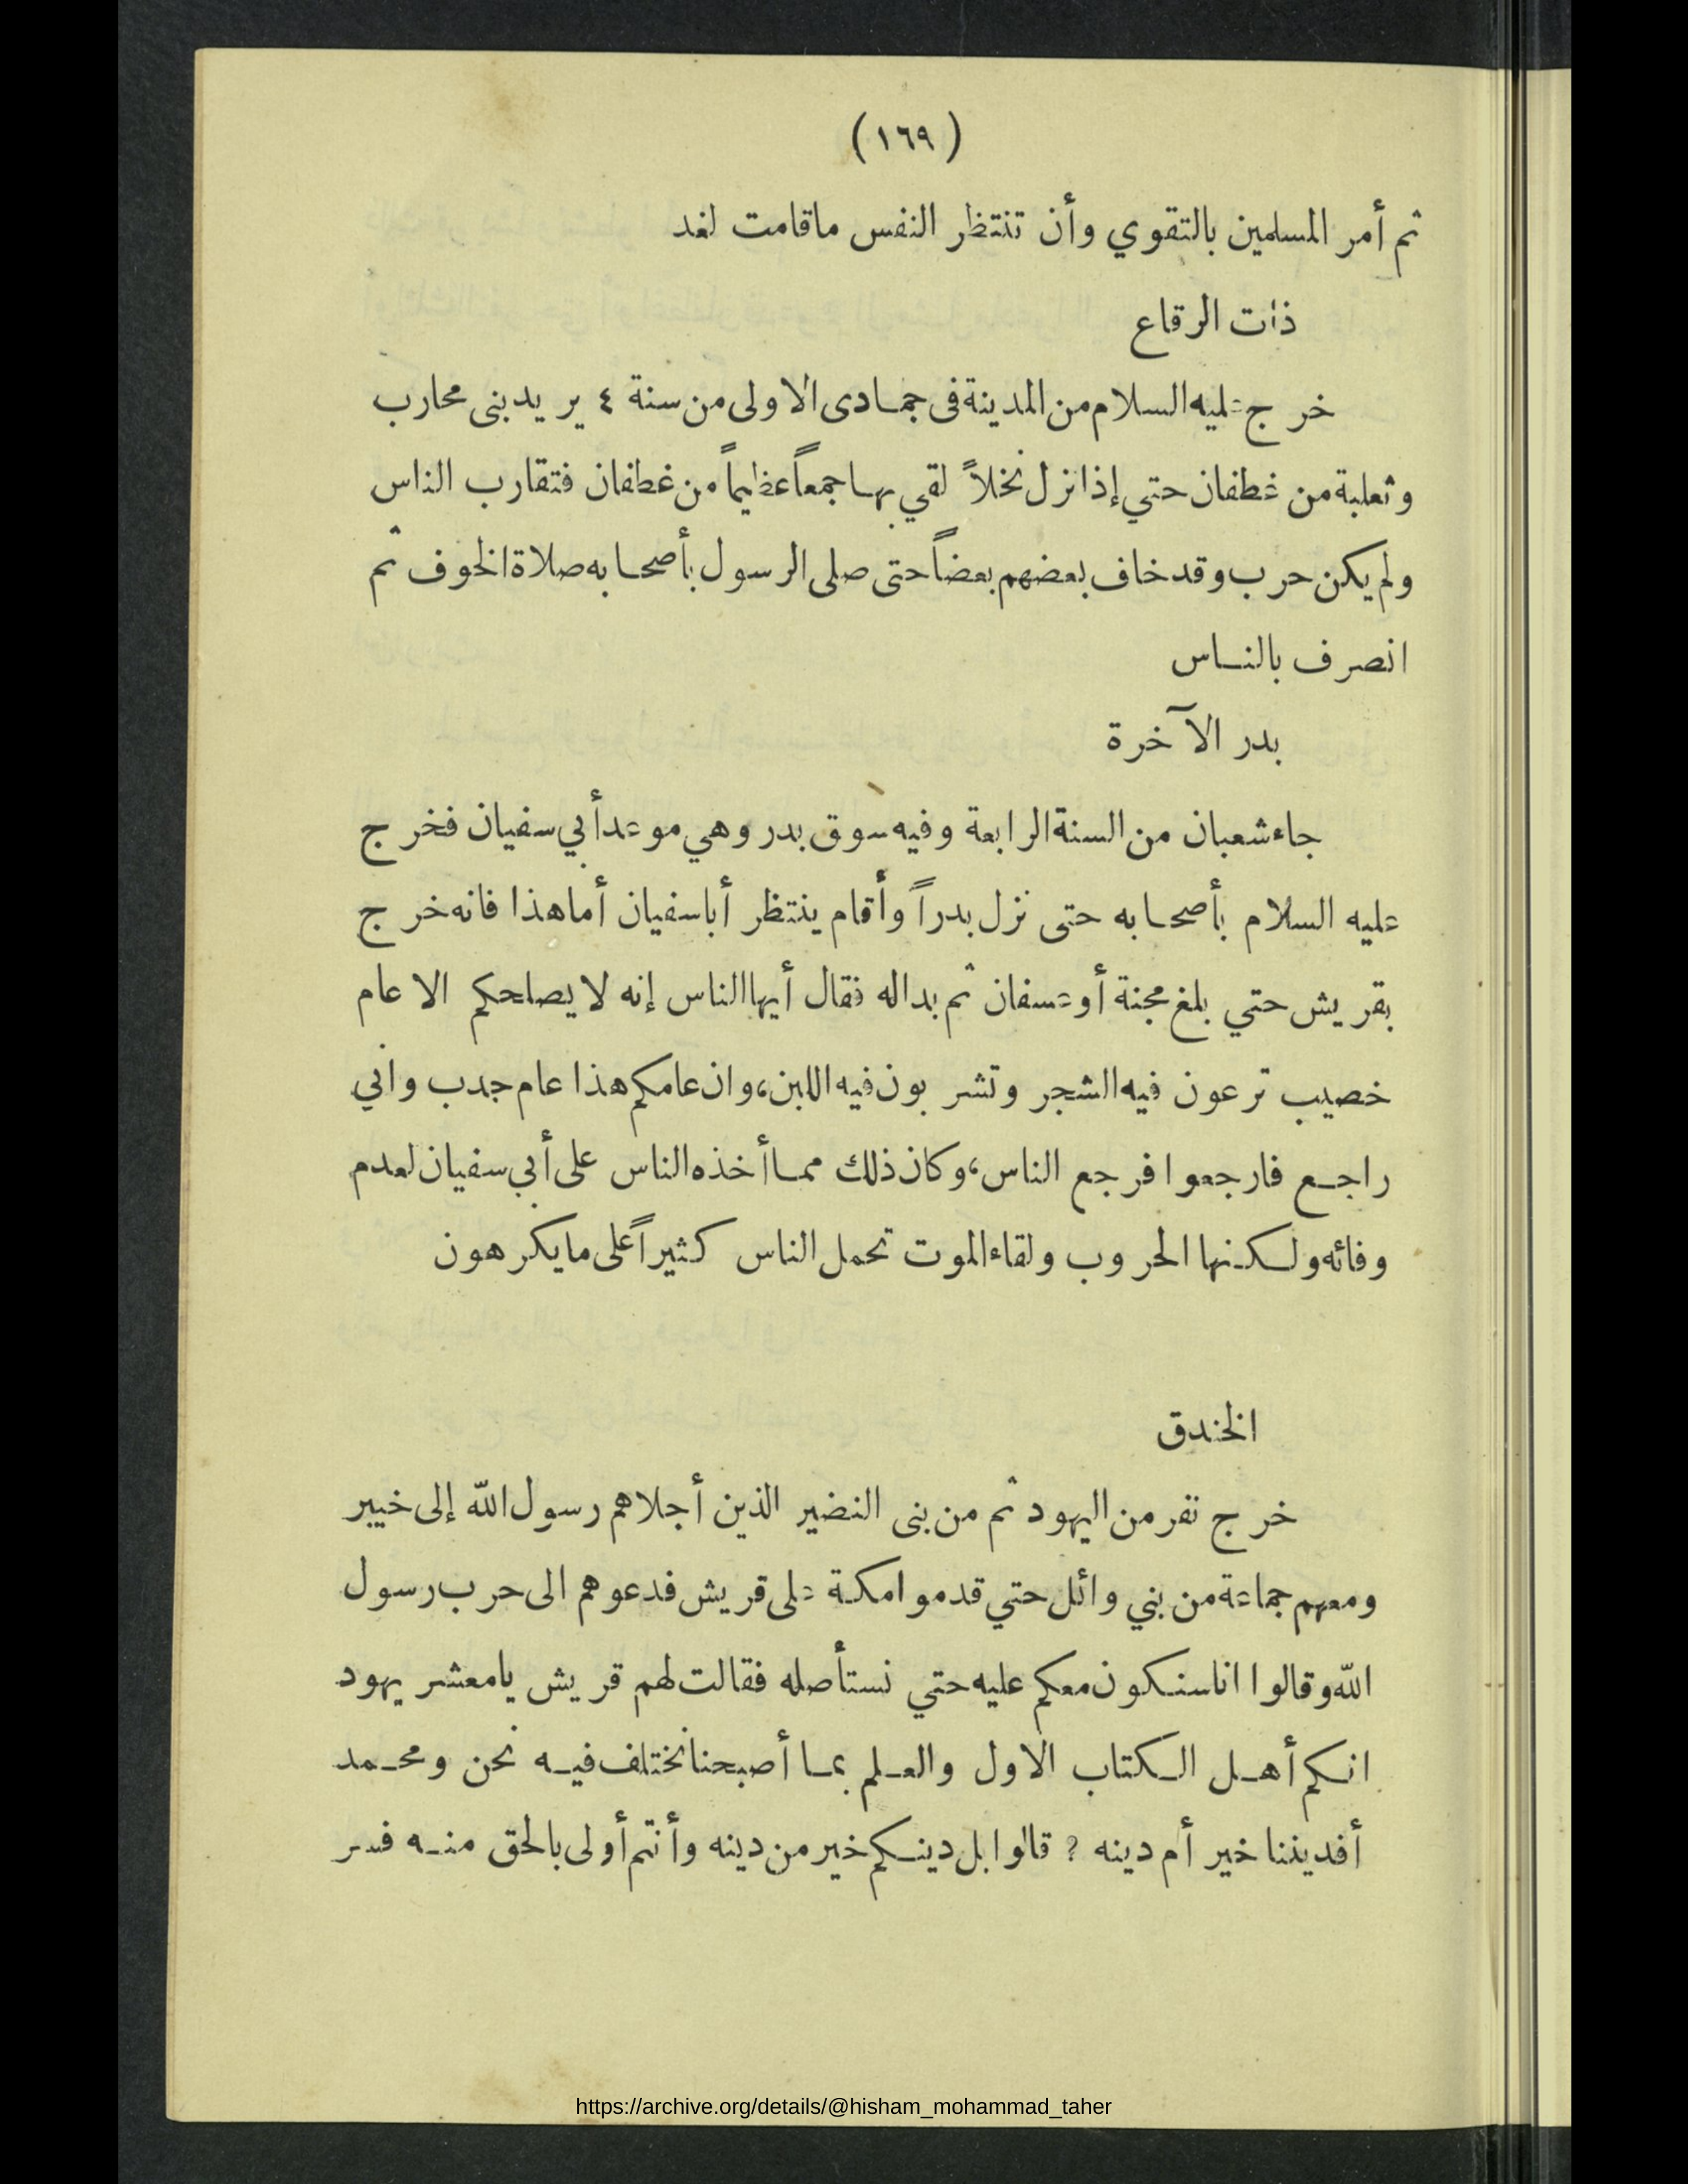 (١٦٩)
ثم أمر المسلمين بالتقوي وأن تنتظر النفس ماقامت لغد
ذات الرقاع
خرج عليه السلام من المدينة فى جمادى الاولى من سنة ٤ يريد بنى محارب
وثعلبة من غطفان حتي إذا نزل نخلاً لقي بها جمعاً عظيماً من غطفان فتقارب الناس
ولم يكن حرب وقد خاف بعضهم بعضاً حتى صلى الرسول بأصحابه صلاة الخوف ثم
انصرف بالناس
بدر الآخرة
جاء شعبان من السنة الرابعة وفيه سوق بدر وهي موعد أبي سفيان فخرج
عليه السلام بأصحابه حتى نزل بدراً وأقام ينتظر أبا سفيان أما هذا فانه خرج
بقريش حتي بلغ مجنة أو عسفان ثم بدا له فقال أيها الناس إنه لا يصلحكم الا عام
خصيب ترعون فيه الشجر وتشربون فيه اللبن، وان عامكم هذا عام جدب واني
راجع فارجعوا فرجع الناس، وكان ذلك مما أخذه الناس على أبي سفيان لعدم
وفائه ولكنها الحروب ولقاء الموت تحمل الناس كثيراً على ما يكرهون
الخندق
خرج نفر من اليهود ثم من بنى النضير الذين أجلاهم رسول الله إلى خيبر
ومعهم جماعة من بني وائل حتي قدموا مكة على قريش فدعوهم الى حرب رسول
الله وقالوا انا سنكون معكم عليه حتي نستأصله فقالت لهم قريش يا معشر يهود
انكم أهل الكتاب الاول والعلم بما أصبحنا نختلف فيه نحن ومحمد
أفديننا خير أم دينه ؟ قالوا بل دينكم خير من دينه وأنتم أولى بالحق منه فسر
https://archive.org/details/@hisham_mohammad_taher